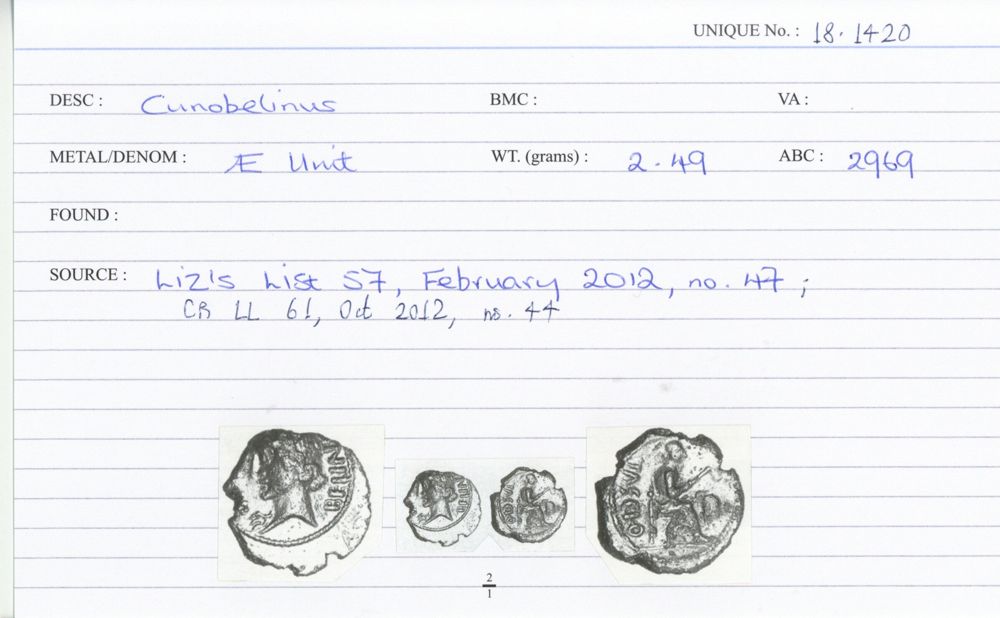 UNIQUE No. : 18.1420
DESC : Cunobelinus BMC : VA :
METAL/DENOM : Æ Unit WT. (grams) : 2.49 ABC : 2969
FOUND :
SOURCE : Liz's List 57, February 2012, no. 47 ;
CR LL 61, Oct 2012, no. 44
2
1